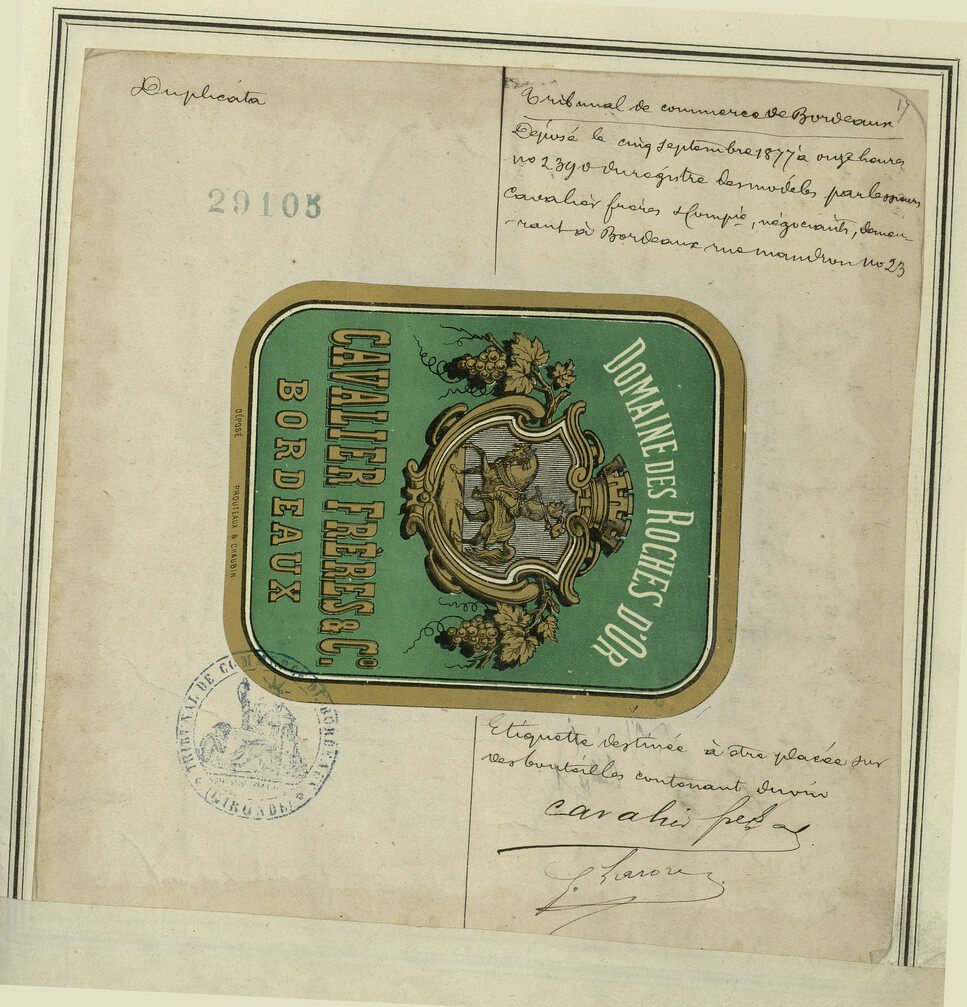 Duplicata
29105
17
Tribunal de commerce de Bordeaux
Déposé le cinq septembre 1877 à onze heures
no 2390 du registre des modèles par les sieurs
Cavalier frères & Compie, négociants, demeu-
-rant à Bordeaux rue mandron no 23
DOMAINE DES ROCHES D'OR
CAVALIER FRÈRES & Co.
BORDEAUX
DÉPOSÉ
PROUTEAUX & CHAUBIN
TRIBUNAL DE COMMERCE DE BORDEAUX
(GIRONDE)
Etiquette destinée à être placée sur
des bouteilles contenant du vin
Cavalier